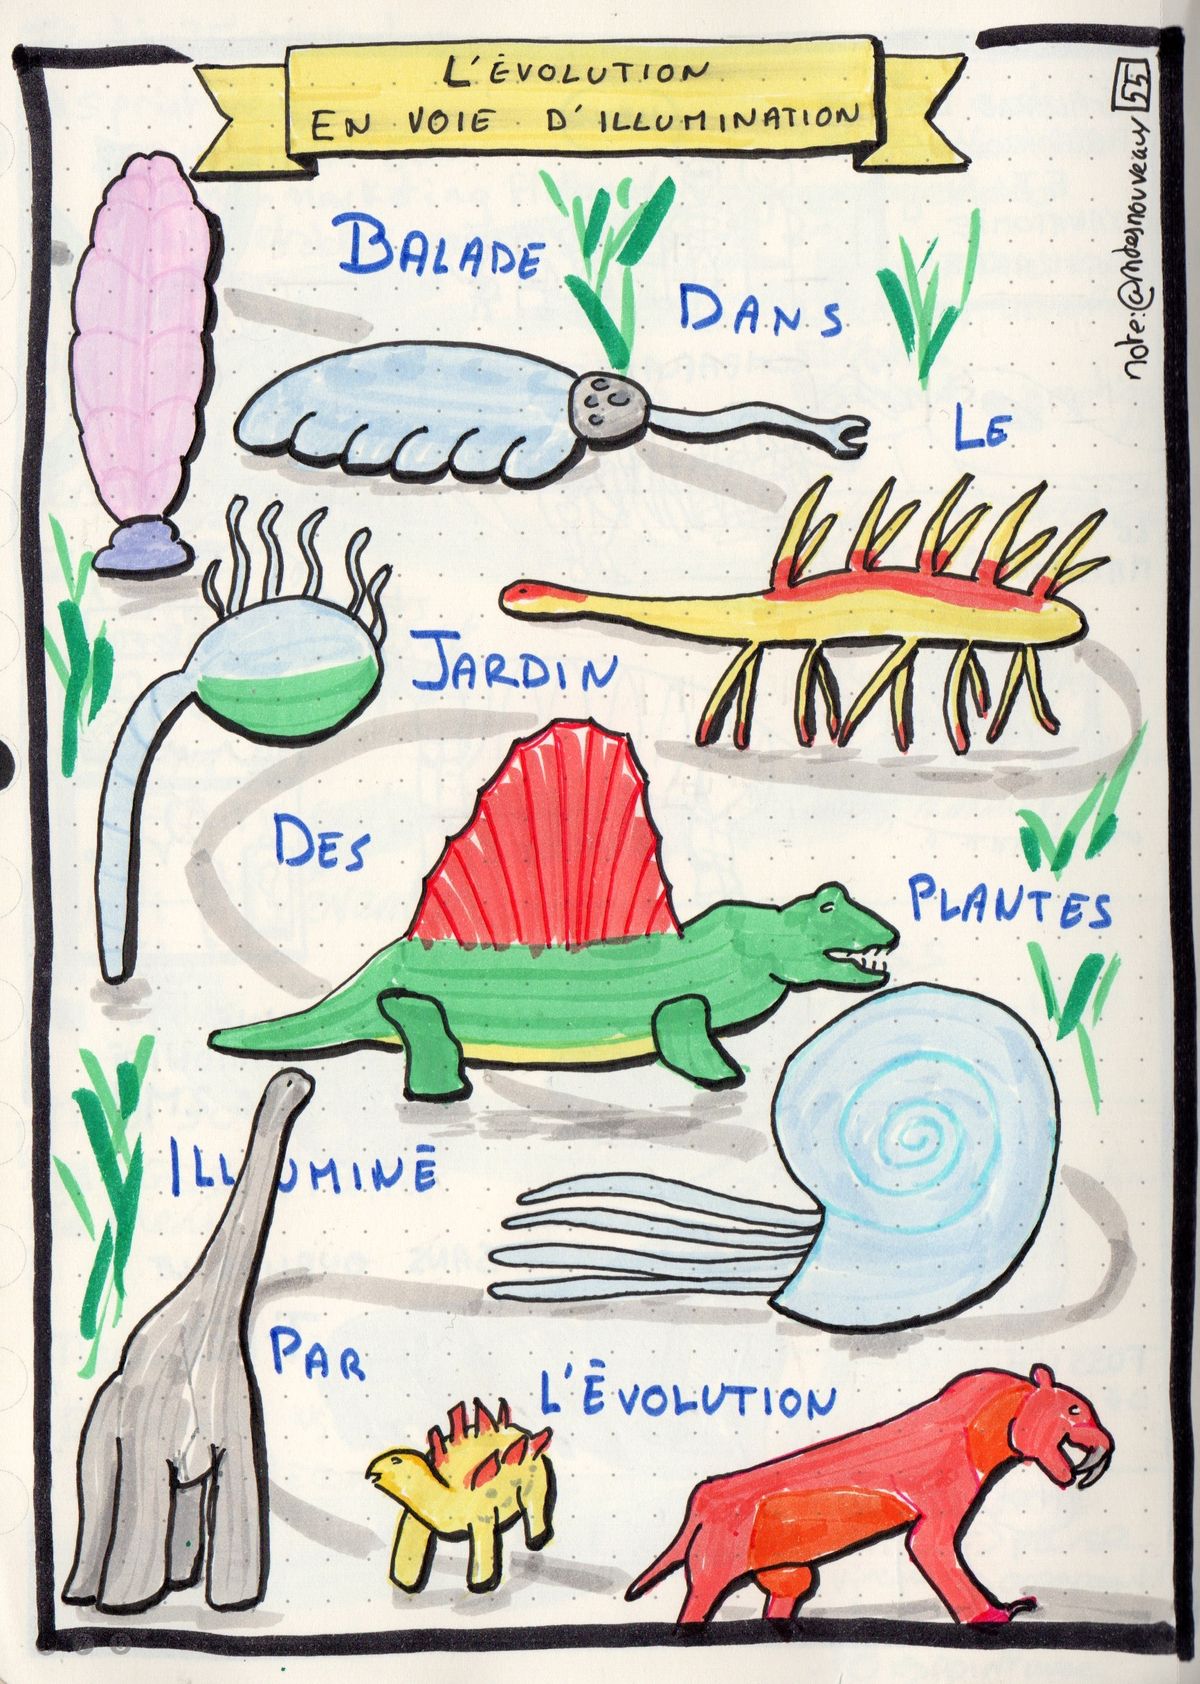 L'ÉVOLUTION
EN VOIE D'ILLUMINATION
55
note:@mhdesnouveaux
BALADE
DANS
LE
JARDIN
DES
PLANTES
ILLUMINÉ
PAR
L'ÉVOLUTION